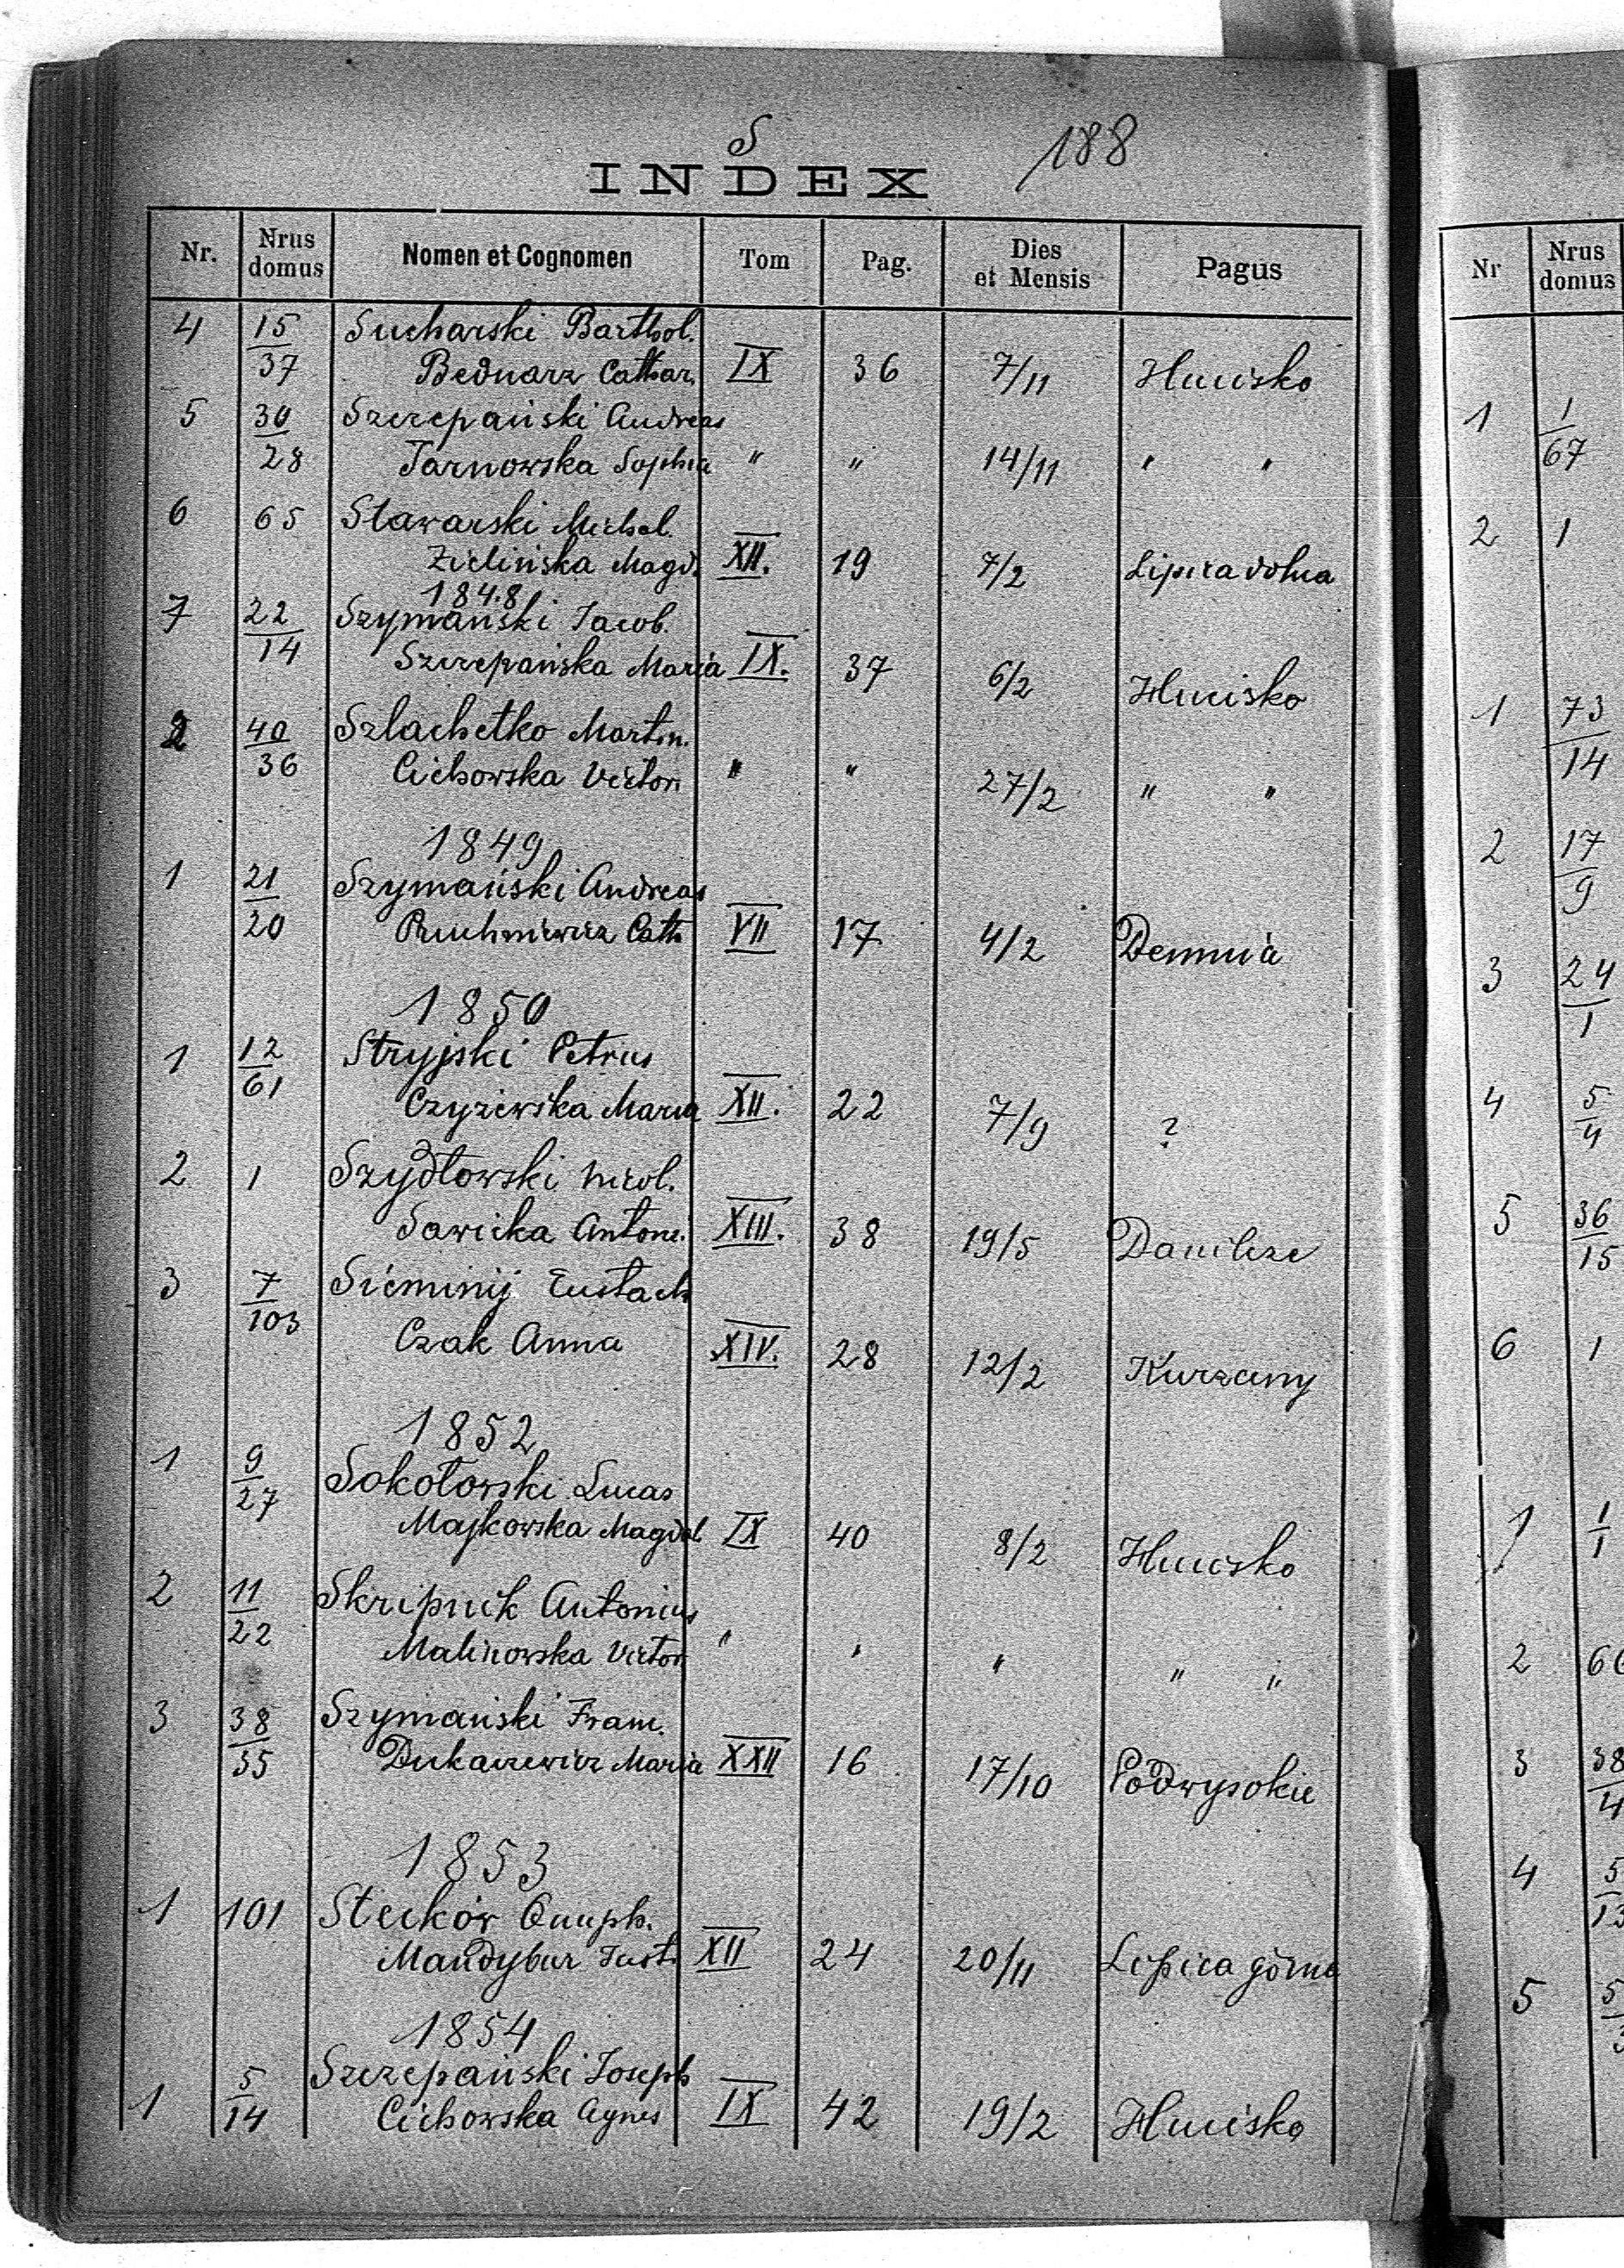 S 188
INDEX
Nr. Nrus domus Nomen et Cognomen Tom Pag. Dies et Mensis Pagus
4 15 Sucharski Barthol.
37 Bednarz Cathar. IX 36 7/11 Hucisko
5 30 Szczepański Andreas
28 Tarnowska Sophia " " 14/11 " "
6 65 Stawarski Michal.
Zielińska Magd. XII. 19 7/2 Lipica dolna
1848
7 22 Szymański Jacob.
14 Szczepańska Maria IX. 37 6/2 Hucisko
2 40 Szlachetko Martin.
36 Cichowska Victor. " " 27/2 " "
1849
1 21 Szymański Andreas
20 Cath. VII 17 4/2 Demnia
1850
1 12 Stryjski Petrus
61 Czyżewska Maria XII. 22 7/9 ?
2 1 Szydłowski Nicol.
Sawicka Antoni. XIII. 38 19/5 Danilcze
3 7 Sieminij Eustach
103 Czak Anna XIV. 28 12/2 Kurzany
1852
1 9 Sokołowski Lucas
27 Majkowska Magdal. IX 40 8/2 Hucisko
2 11 Skripnik Antonius
22 Malinowska Victor. " " " " "
3 38 Szymański Franc.
35 Dukaczewicz Maria XXII 16 17/10 Podwysokie
1853
1 101 Stecków Onuph.
Mandybur Just. XII 24 20/11 Lipica górna
1854
1 5 Szczepański Joseph
14 Cichowska Agnes IX 42 19/2 Hucisko
Nr Nrus domus
1 1
67
2 1
1 73
14
2 17
9
3 24
1
4 5
4
5 36
15
6 1
1 1
1
2
3 38
4
4
5